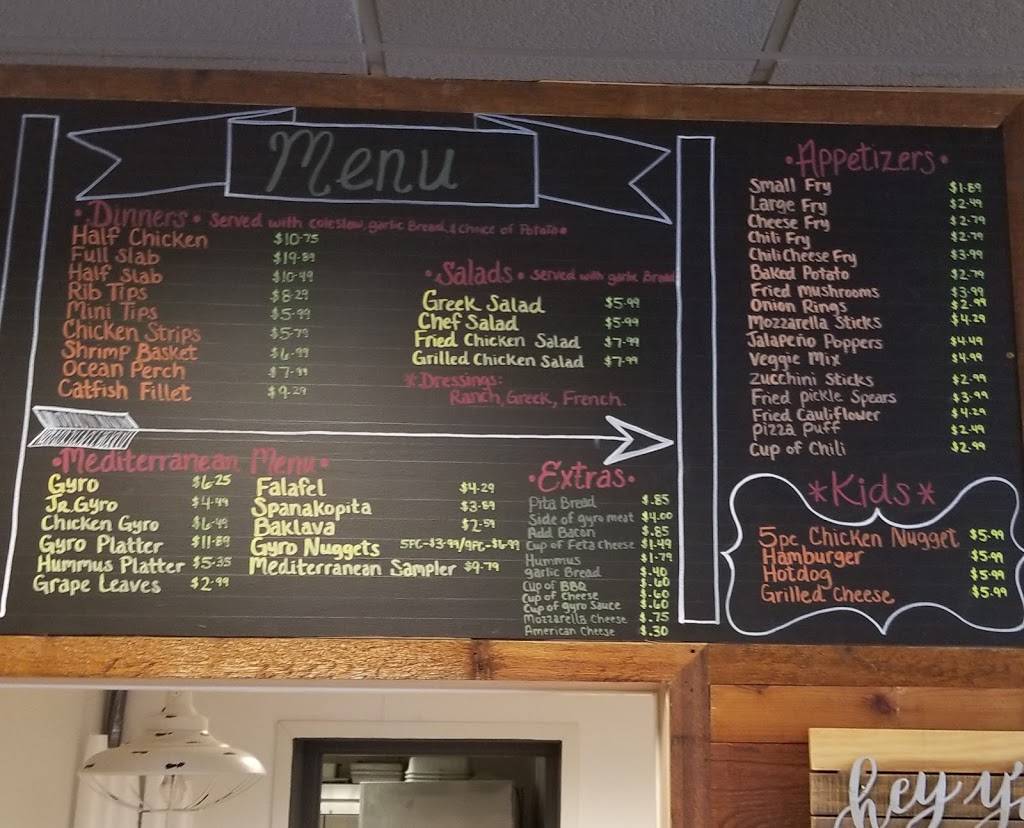 Menu
•Dinners• Served with coleslaw, garlic Bread, & choice of Potato•
Half Chicken $10.75
Full Slab $19.89
Half Slab $10.49
Rib Tips $8.29
Mini Tips $5.99
Chicken Strips $5.79
Shrimp Basket $6.99
Ocean Perch $7.99
Catfish Fillet $9.29
•Salads• Served with garlic Bread
Greek Salad $5.99
Chef Salad $5.99
Fried Chicken Salad $7.99
Grilled Chicken Salad $7.99
*Dressings:
Ranch, Greek, French.
•Mediterranean Menu•
Gyro $6.25
Jr. Gyro $4.49
Chicken Gyro $6.49
Gyro Platter $11.89
Hummus Platter $5.35
Grape Leaves $2.99
Falafel $4.29
Spanakopita $3.89
Baklava $2.59
Gyro Nuggets 5PC-$3.99/9PC-$6.99
Mediterranean Sampler $9.79
•Extras•
Pita Bread $.85
Side of gyro meat $4.00
Add Bacon $.85
Cup of Feta Cheese $1.49
Hummus $1.79
garlic Bread $.40
Cup of BBQ $.60
Cup of Cheese $.60
Cup of gyro Sauce $.60
Mozzarella Cheese $.75
American Cheese $.30
•Appetizers•
Small Fry $1.89
Large Fry $2.49
Cheese Fry $2.79
Chili Fry $2.79
Chili Cheese Fry $3.99
Baked Potato $2.79
Fried Mushrooms $3.99
Onion Rings $2.99
Mozzarella Sticks $4.29
Jalapeño Poppers $4.49
Veggie Mix $4.99
Zucchini Sticks $2.99
Fried pickle Spears $3.99
Fried Cauliflower $4.29
Pizza Puff $2.49
Cup of Chili $2.99
*Kids*
5pc. Chicken Nugget $5.99
Hamburger $5.99
Hotdog $5.99
Grilled Cheese $5.99
hey